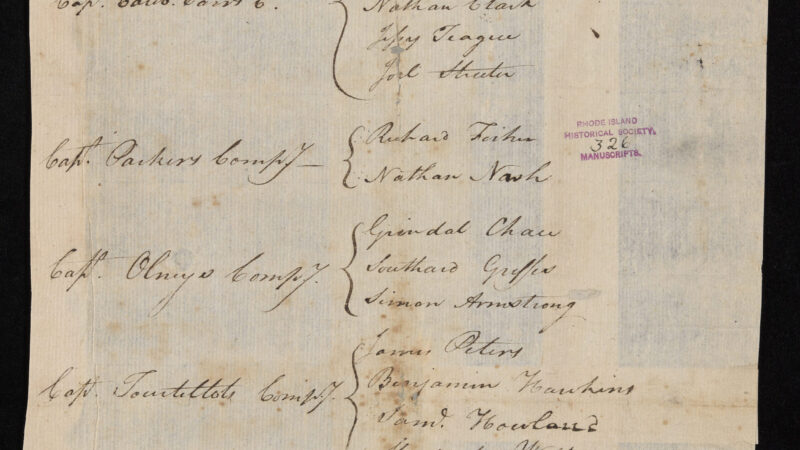 Capt. Carr's C.
Nathan Clark
Jessy Teague
Joel Streeter
RHODE ISLAND
HISTORICAL SOCIETY.
326
MANUSCRIPTS.
Capt. Parkers Compy —
Richard Fisher
Nathan Nash
Capt. Olneys Compy.
Grindal Chace
Southard
Simon Armstrong
Capt. Tourtellots Compy.
James Peters
Benjamin Hawkins
Saml. Howland